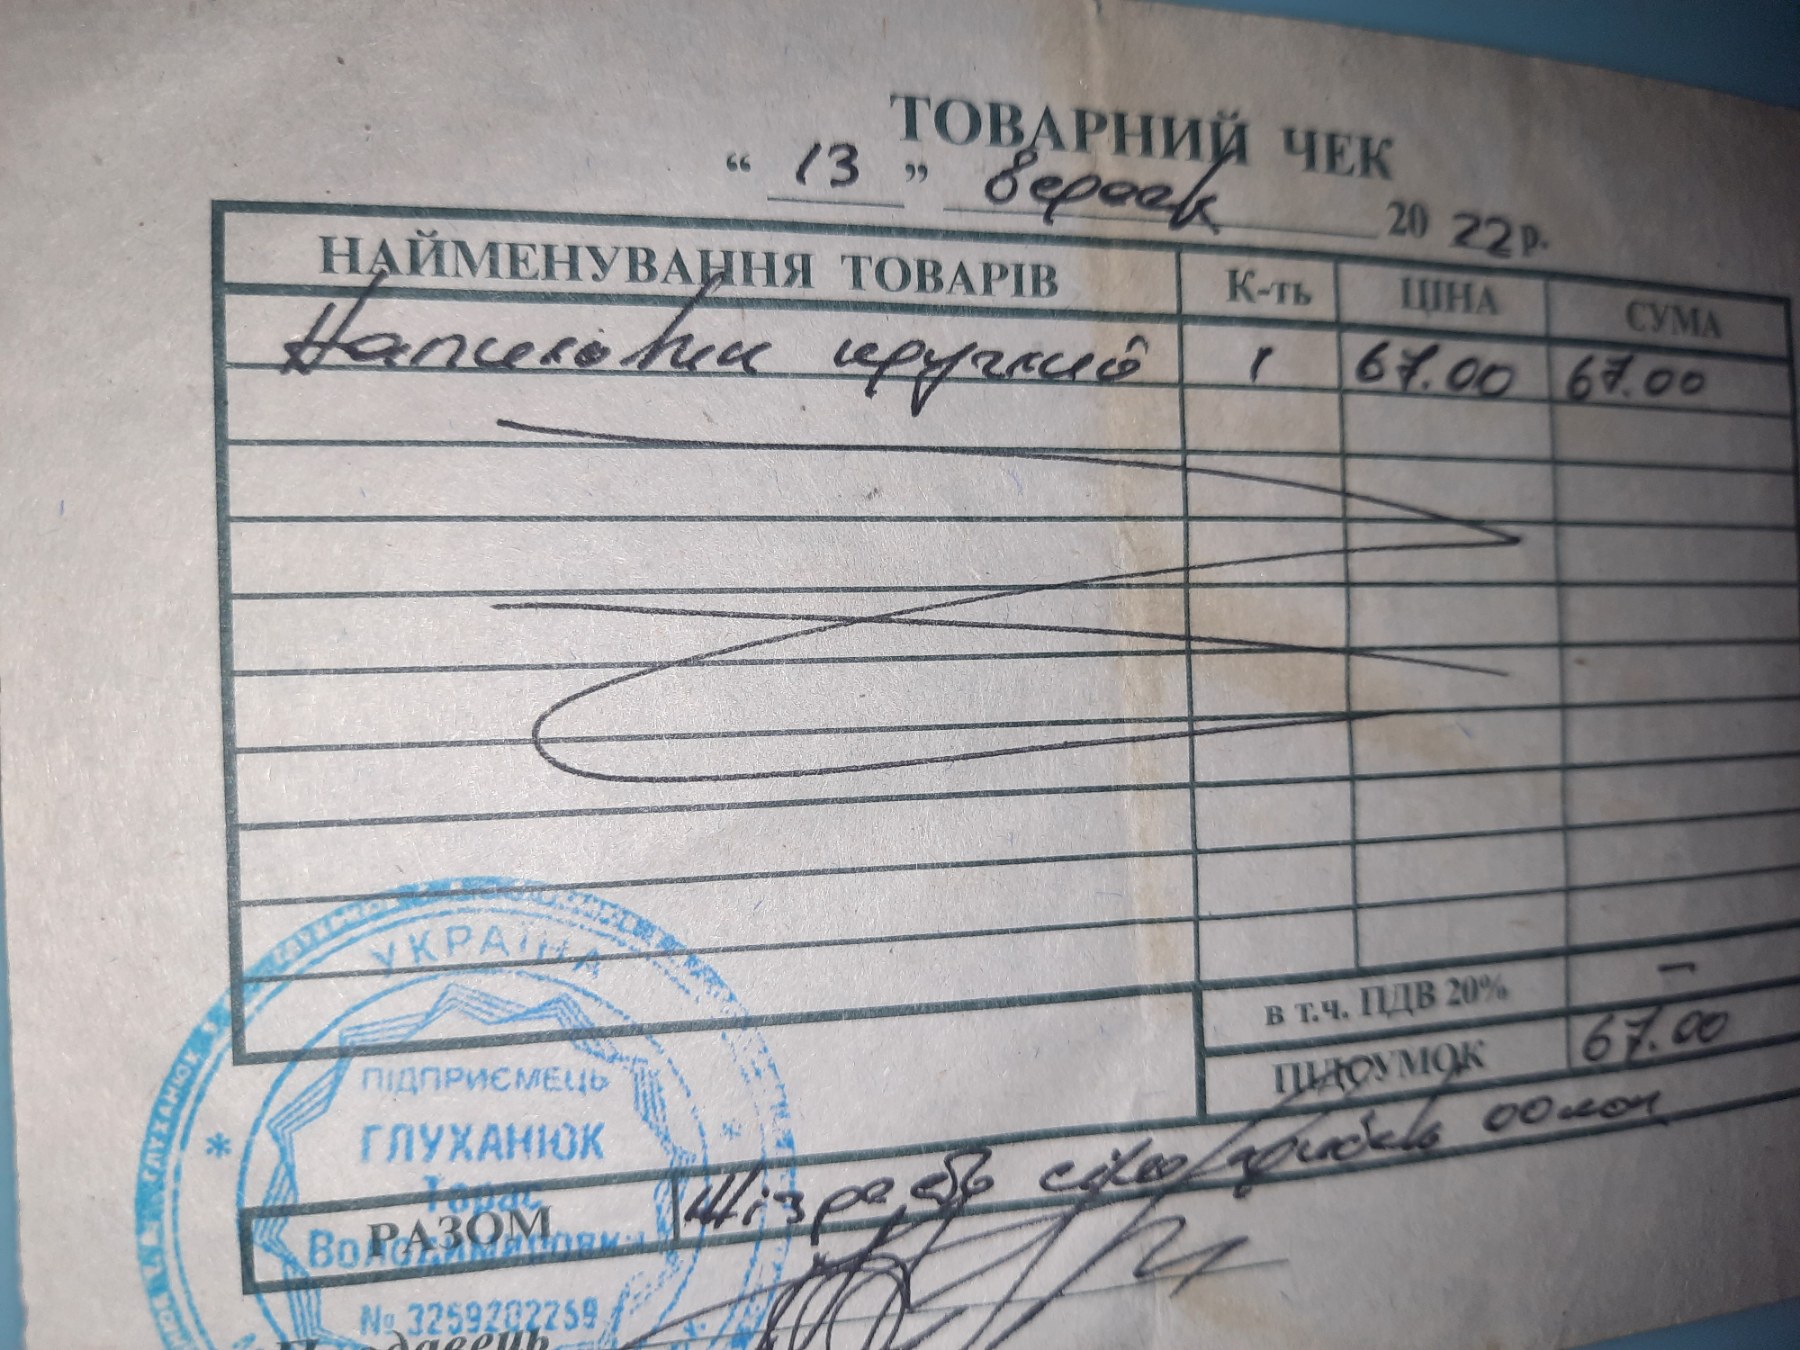 ТОВАРНИЙ ЧЕК
“ 13 ” 20 22 р.
НАЙМЕНУВАННЯ ТОВАРІВ К-ть ЦІНА СУМА
Напилок 1 67.00 67.00
в т.ч. ПДВ 20% —
ПІДСУМОК 67.00
РАЗОМ Шістдесят сім гривень 00 коп
УКРАЇНА
ГЛУХАНЮК
ПІДПРИЄМЕЦЬ
ГЛУХАНЮК
Тарас
Володимирович
№ 3259202259
Продавець